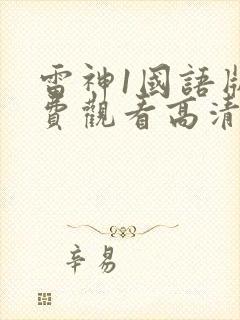 雷神1國語版
費觀看高清
辛易